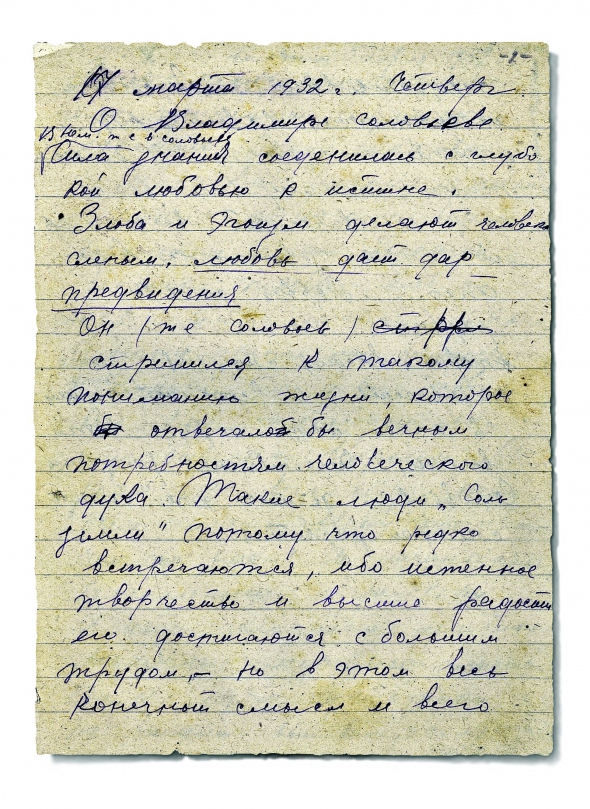 -1-
17 марта 1932 г Четверг
О Владимире Соловьеве
В нем т е в соловьеве
Сила знания соеденилась с глубо
кой любовью к истине.
Злоба и эгоизм делают человека
слепым, любовь даст дар
предвидения
Он (т е Соловьев)
стремился к такому
пониманию жизни, которое
отвечало бы вечным
потребностям человеческого
духа. Такие люди „Соль
земли" потому что редко
встречаются, ибо истенное
творчество и высшие радости
его достигаются с большим
трудом, – но в этом весь
конечный смысл и всего